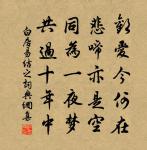 歡愛今何在
悲啼亦是空
同為一夜夢
共過十年中
白居易之詞典網集